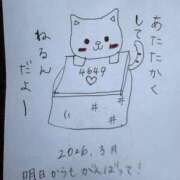 あたたかく
して
ねるん
だよー
4649
2026.3月
明日からもがんばって!